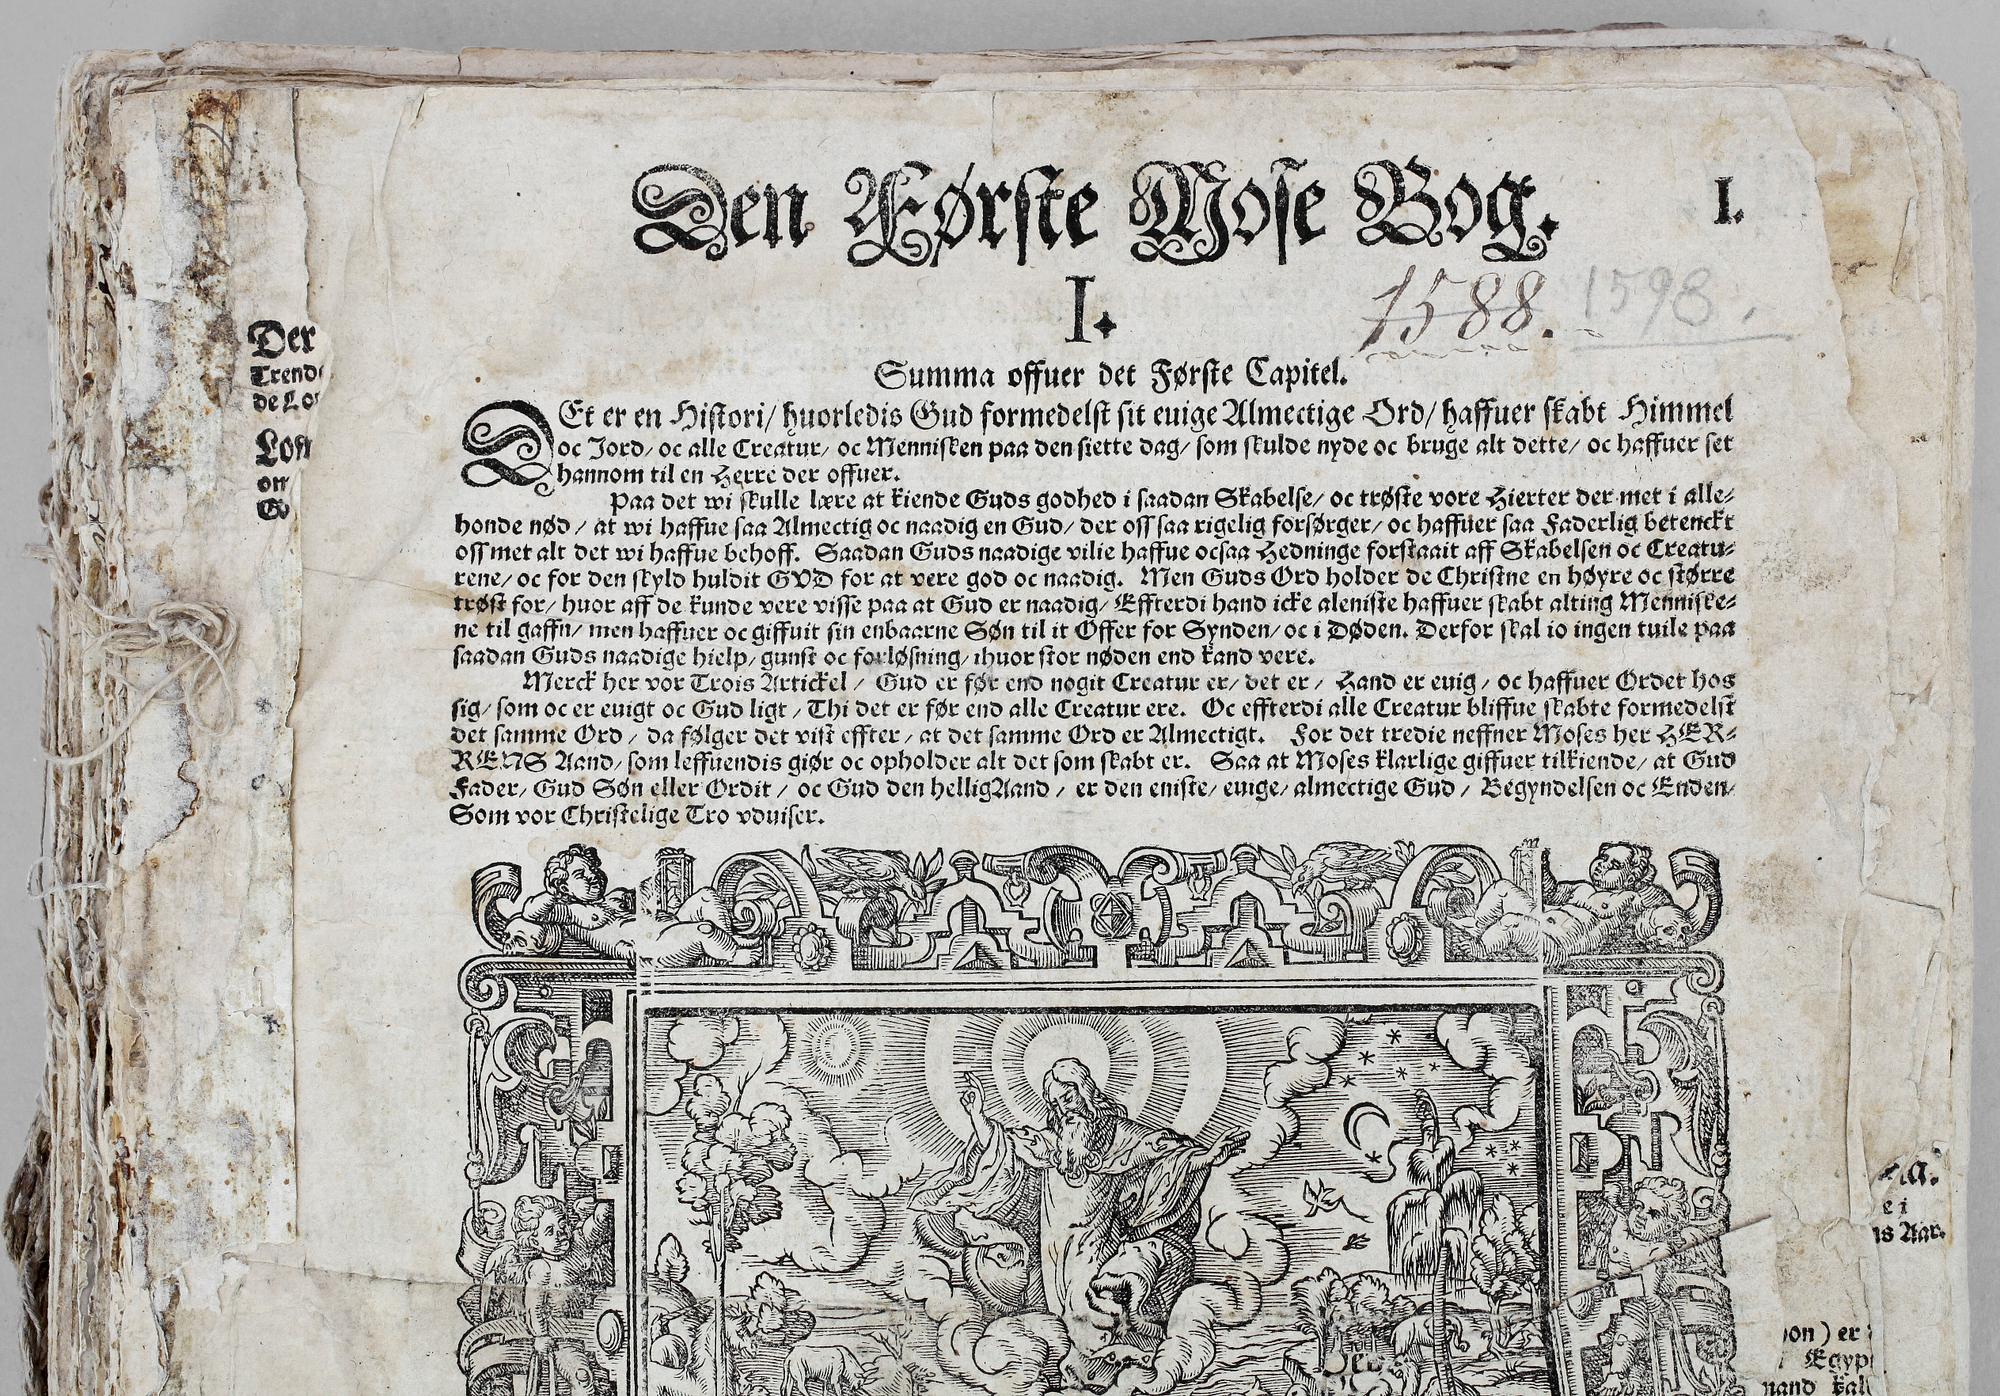 Den Første Mose Bog.
I.
I.
1588. 1598.
Summa offuer det Første Capitel.
DEt er en Histori/ huorledis Gud formedelst sit euige Almectige Ord/ haffuer skabt Himmel
oc Jord/ oc alle Creatur/ oc Mennisken paa den siette dag/ som skulde nyde oc bruge alt dette/ oc haffuer set
hannom til en Herre der offuer.
Paa det wi skulle lære at kiende Guds godhed i saadan Skabelse/ oc trøste vore Hierter der met i alle-
honde nød/ at wi haffue saa Almectig oc naadig en Gud/ der oss saa rigelig forsørger/ oc haffuer saa Faderlig betenckt
oss met alt det wi haffue behoff. Saadan Guds naadige vilie haffue ocsaa Hedninge forstaait aff Skabelsen oc Creatu-
rene/ oc for den skyld huldit GVD for at vere god oc naadig. Men Guds Ord holder de Christne en høyre oc større
trøst for/ huor aff de kunde vere visse paa at Gud er naadig/ Effterdi hand icke aleniste haffuer skabt alting Menniske-
ne til gaffn/ men haffuer oc giffuit sin enbaarne Søn til it Offer for Synden/ oc i Døden. Derfor skal io ingen tuile paa
saadan Guds naadige hielp/ gunst oc forløsning/ ihuor stor nøden end kand vere.
Merck her vor Trois Artickel/ Gud er før end nogit Creatur er/ det er/ Hand er euig/ oc haffuer Ordet hos
sig/ som oc er euigt oc Gud ligt/ Thi det er før end alle Creatur ere. Oc effterdi alle Creatur bliffue skabte formedelst
det samme Ord/ da følger det vist effter/ at det samme Ord er Almectigt. For det tredie neffner Moses her HER-
RENS Aand/ som leffuendis giør oc opholder alt det som skabt er. Saa at Moses klarlige giffuer tilkiende/ at Gud
Fader/ Gud Søn eller Ordit/ oc Gud den helligAand/ er den eniste/ euige/ almectige Gud/ Begyndelsen oc Enden/
Som vor Christelige Tro vduiser.
Der
Trend
de Lo
on
e i
Aar.
on) er
Egyp